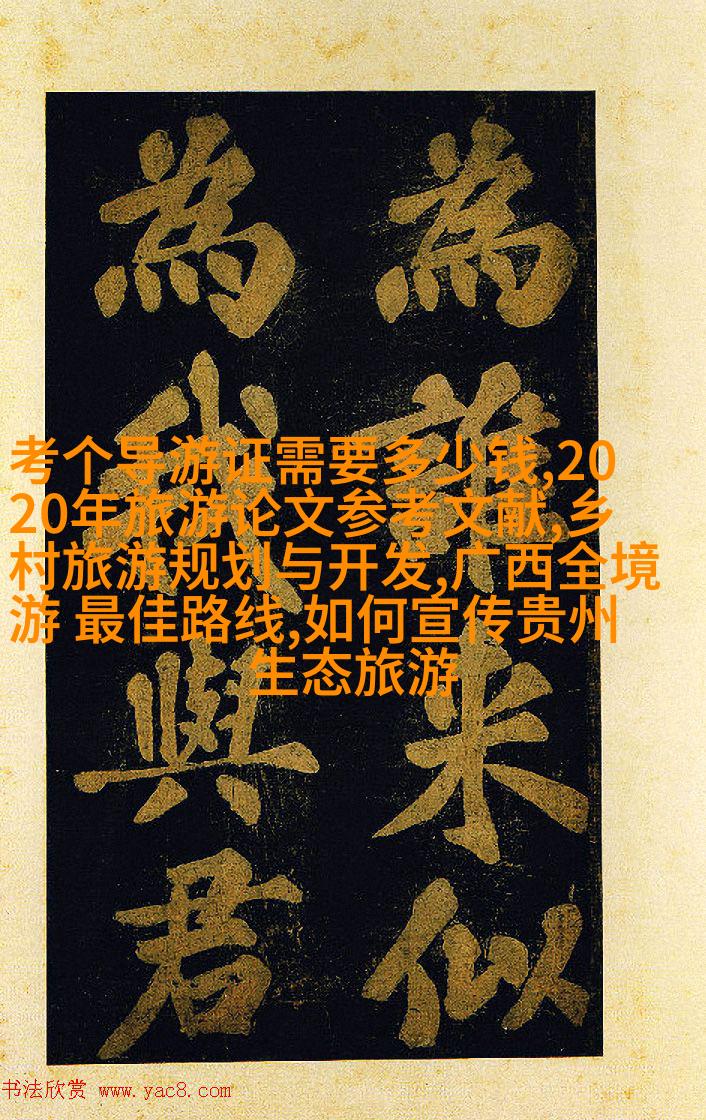 為誰米似
為我與君
考个导游证需要多少钱,20
20年旅游论文参考文献,乡
村旅游规划与开发,广西全境
游 最佳路线,如何宣传贵州
生态旅游
书法欣赏 www.yac8.com